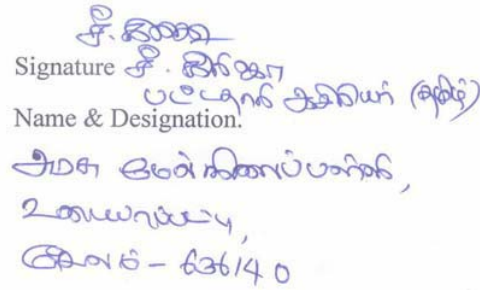 சீ.
Signature சீ.
பட்டதாரி ஆசிரியர் (தமிழ்)
Name & Designation.
அரசு மேல்நிலைப்பள்ளி,
உடையாப்பட்டி,
சேலம் - 636140